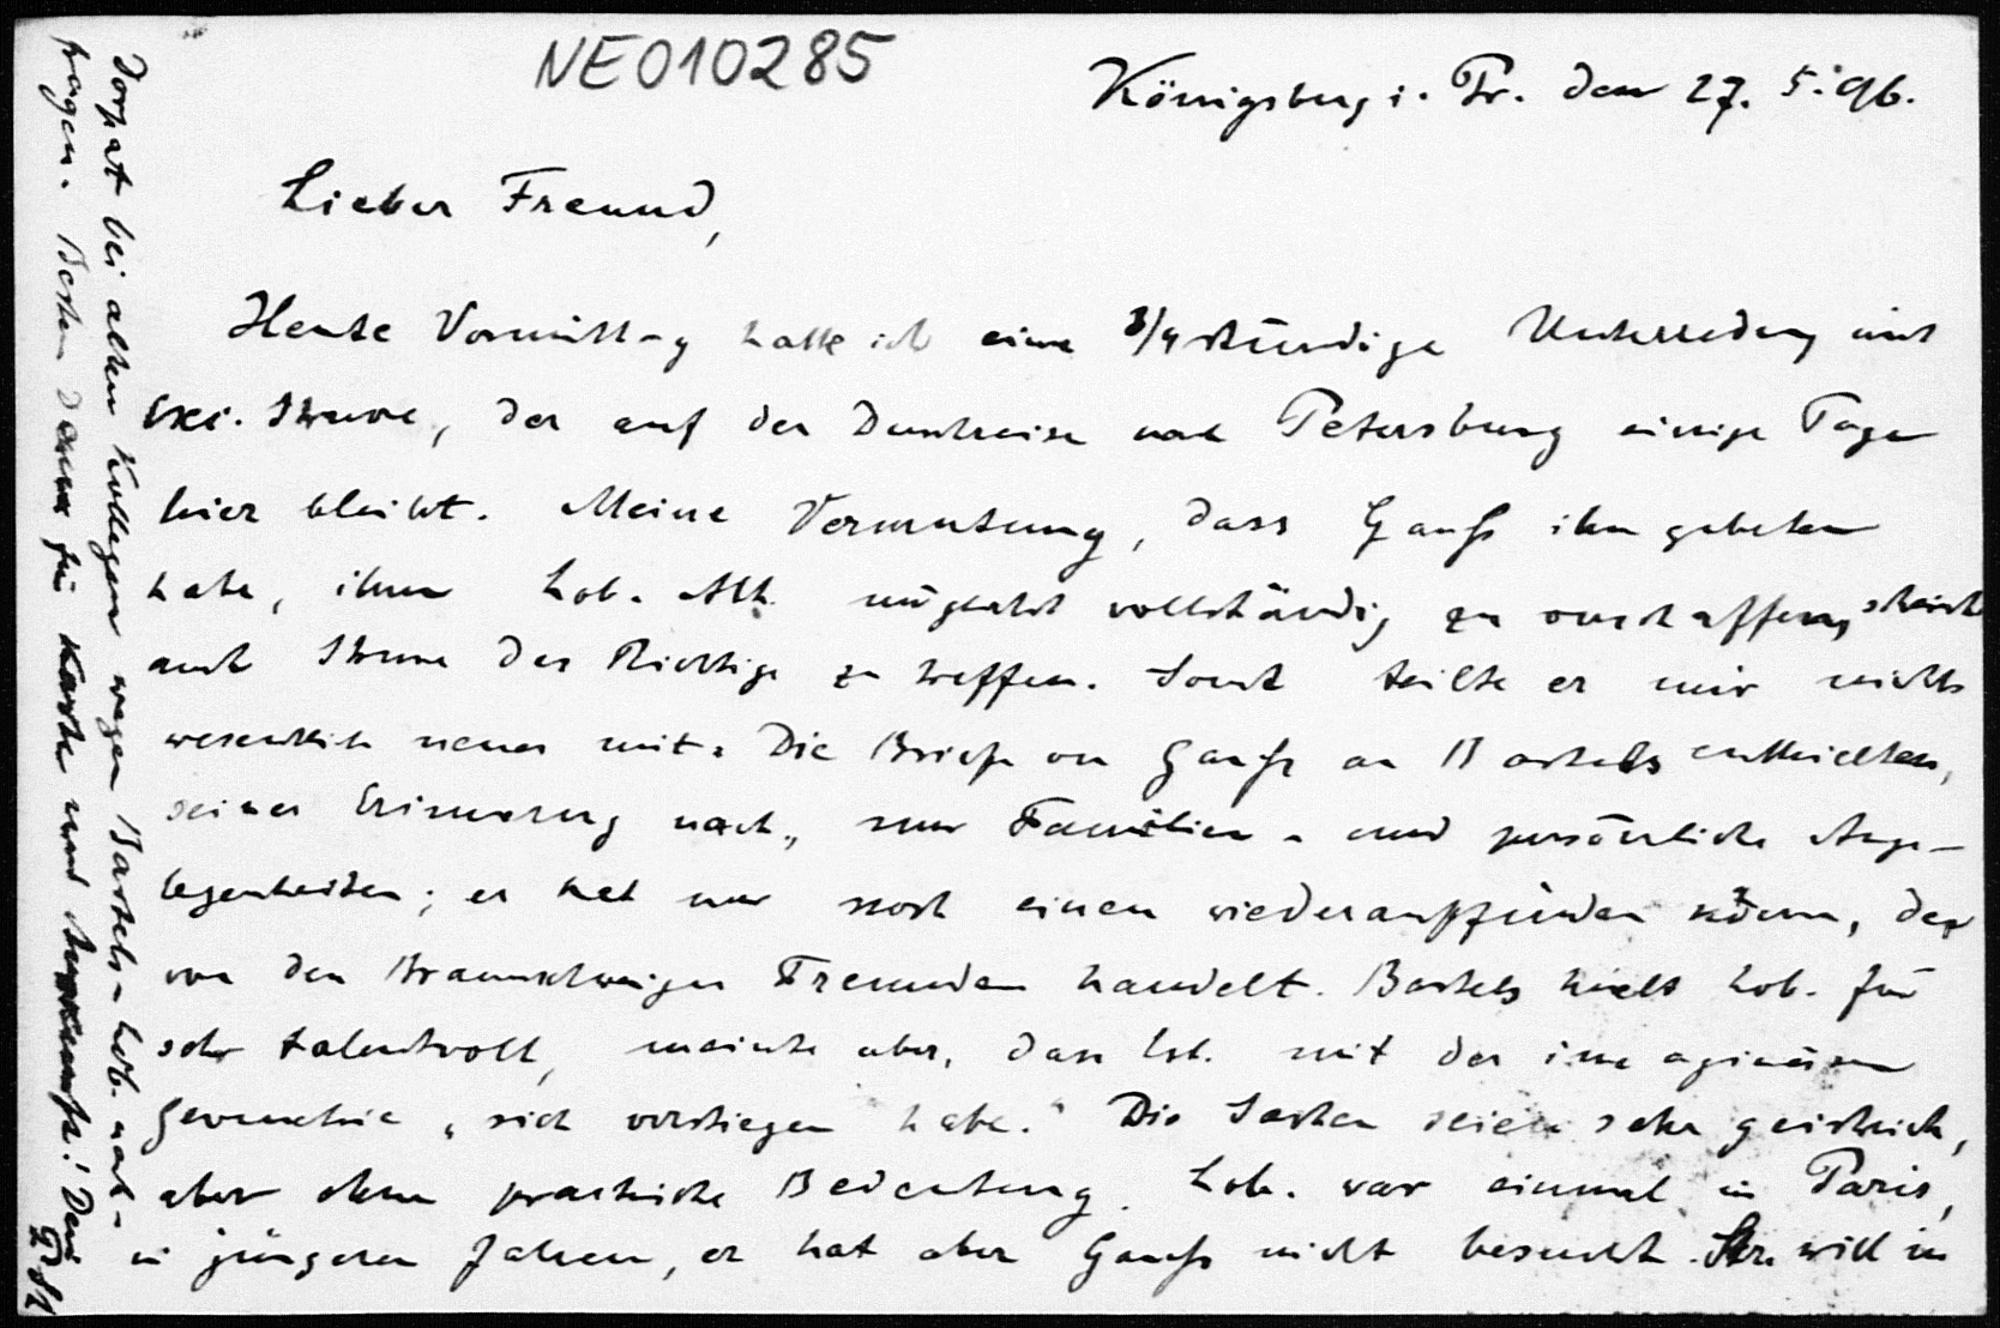 NE010285
Königsberg i. Pr. den 27. 5. 96.
Lieber Freund,
Heute Vormittag hatte ich eine 3/4 stündige Unterredung mit
Exc. Struve, der auf der Durchreise nach Petersburg einige Tage
hier bleibt. Meine Vermutung, dass Gauß ihn gebeten
habe, ihm Lob. Abh. möglichst vollständig zu verschaffen, scheint
auch Struve das Richtige zu treffen. Sonst teilte er mir nichts
wesentlich neues mit. Die Briefe von Gauß an Bartels enthielten,
seiner Erinnerung nach, nur Familien- und persönliche Ange-
legenheiten; er hat nur noch einen wiederauffinden können, der
von den Braunschweiger Freunden handelt. Bartels hielt Lob. für
sehr talentvoll, meinte aber, dass Lob. mit der imaginären
Geometrie „sich verstiegen habe." Die Sachen seien sehr geistreich,
aber ohne praktische Bedeutung. Lob. war einmal in Paris,
in jüngeren Jahren, er hat aber Gauß nicht besucht. Str. will in
Dorpat bei alten Kollegen wegen Bartels-Lob. nach-
fragen. Besten Dank für Karte und Auskunft! Dein
P St